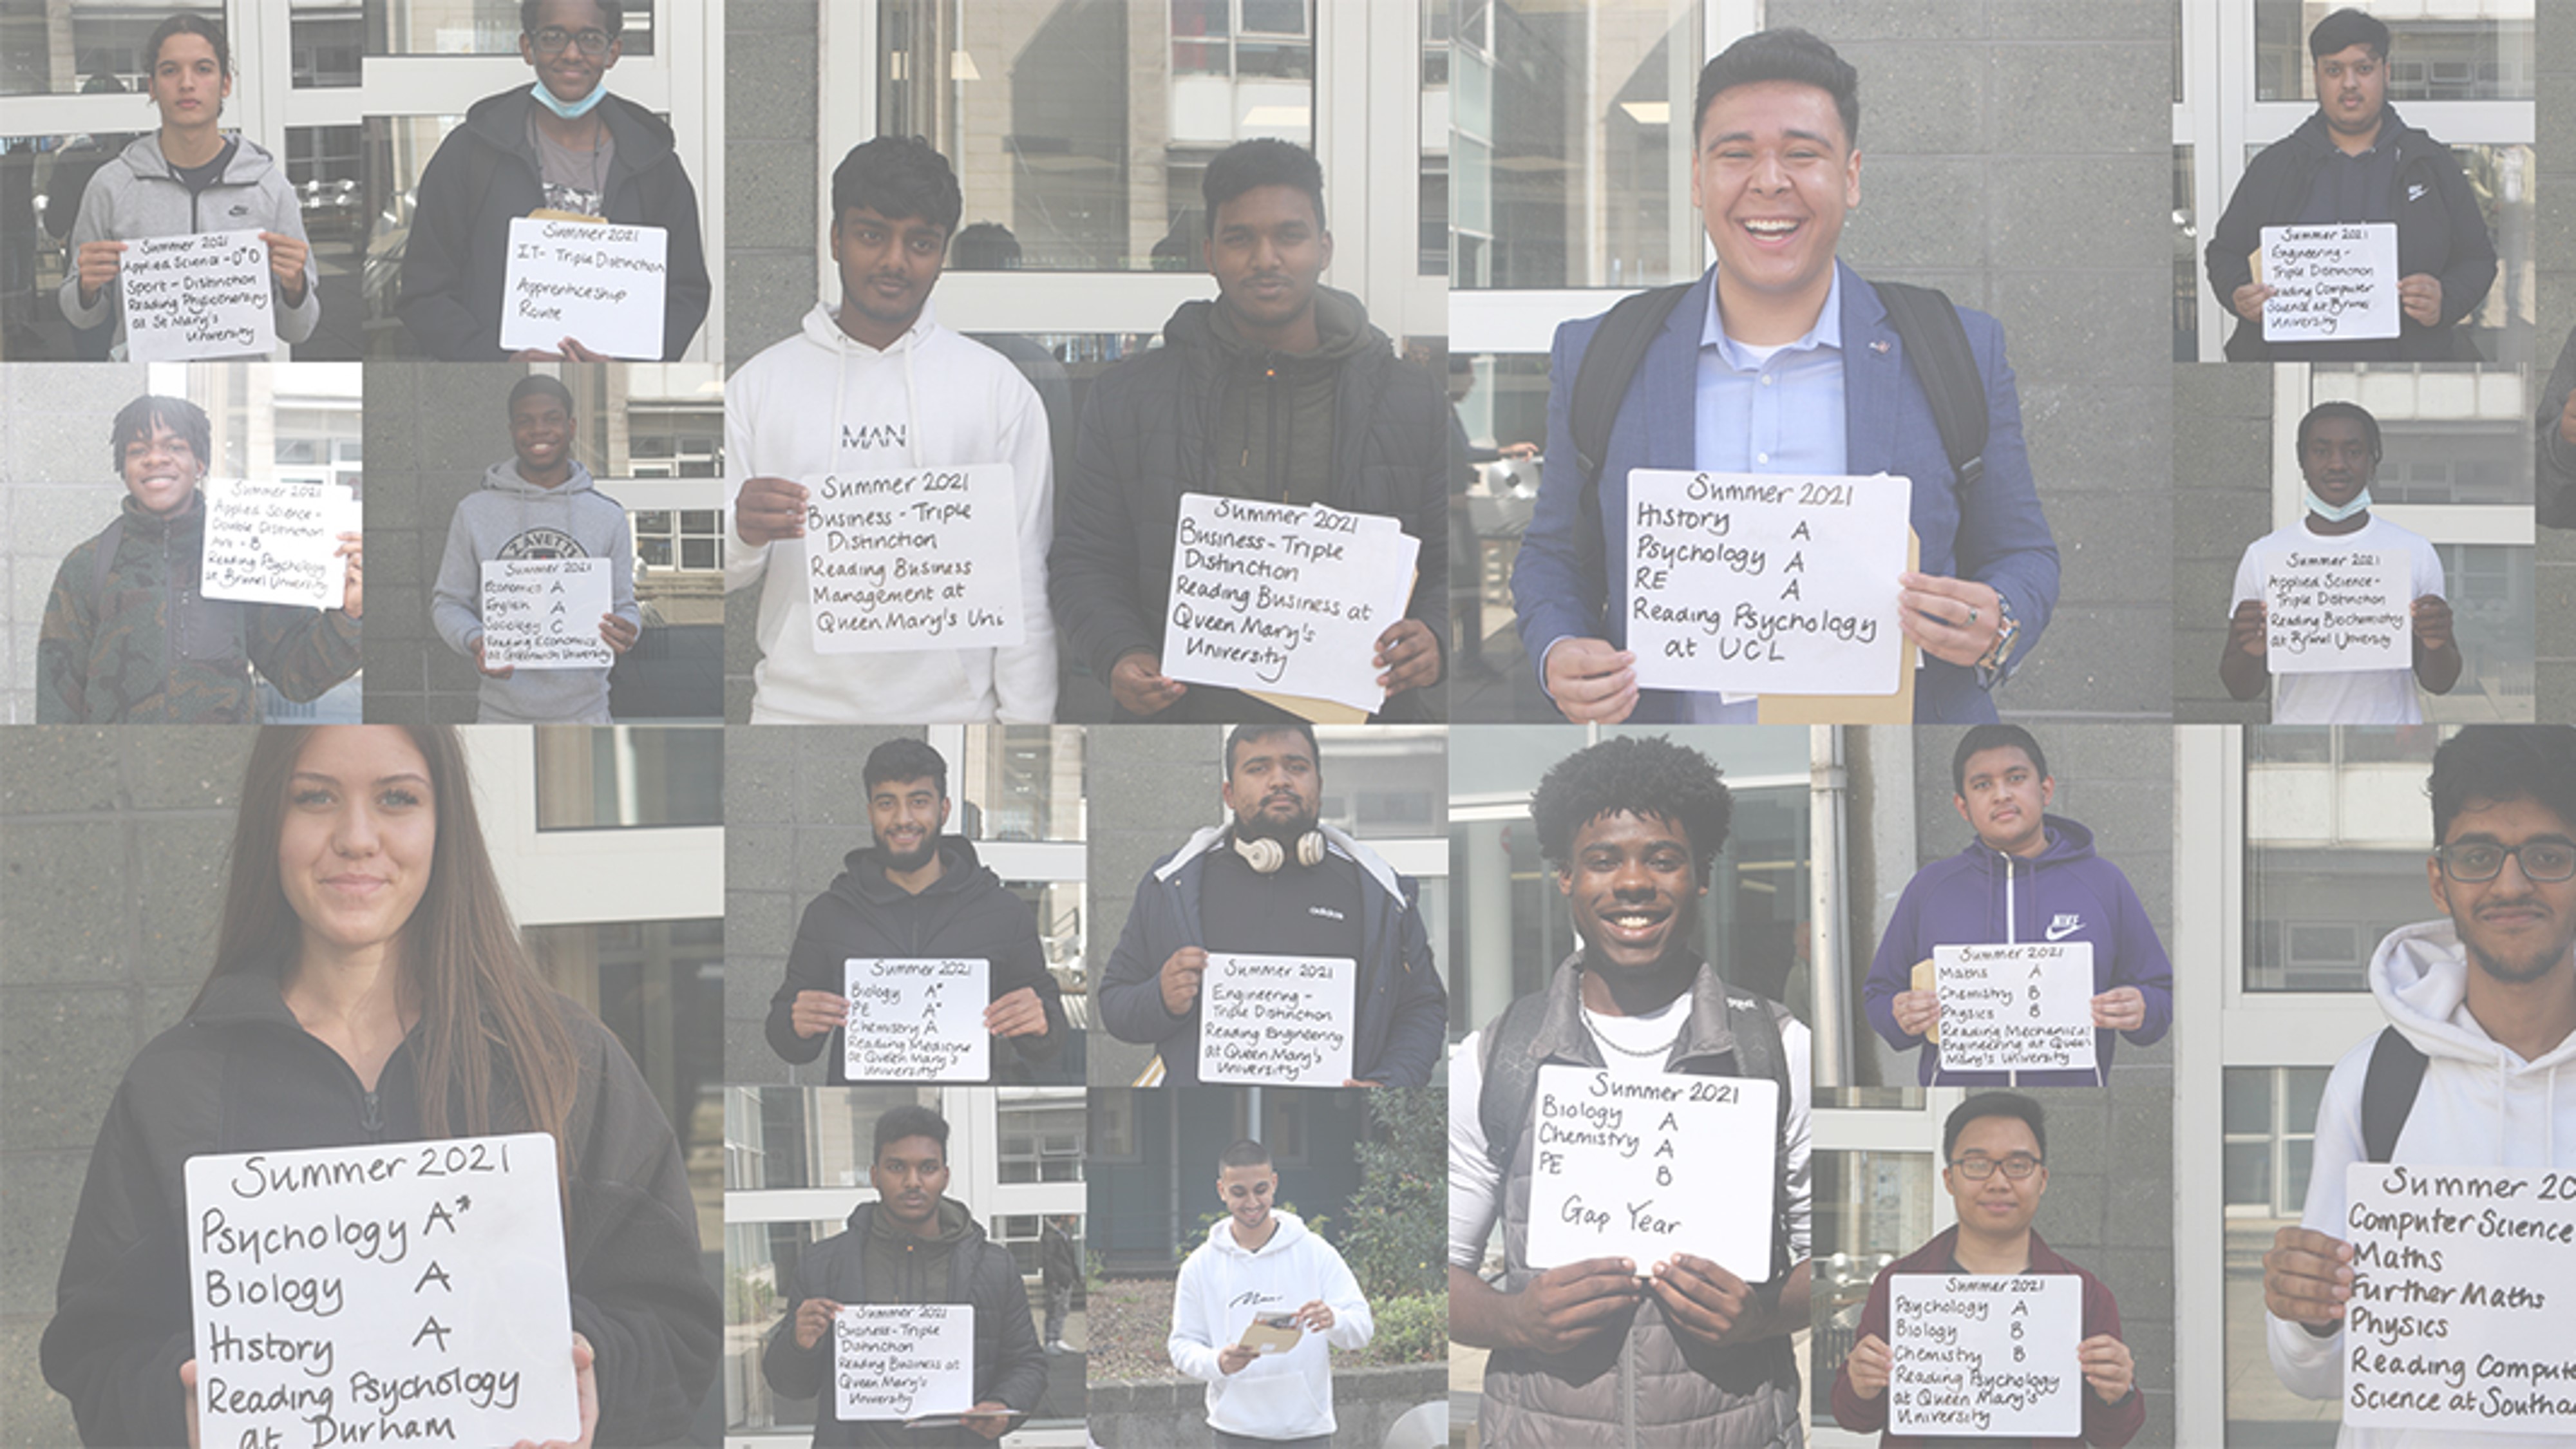 Summer 2021
Applied Science - D*D
Sport - Distinction
Reading Physiotherapy
at St Mary's
University
Summer 2021
IT - Triple Distinction
Apprenticeship
Route
MAN
Summer 2021
Business - Triple
Distinction
Reading Business
Management at
Queen Mary's Uni
Summer 2021
Business - Triple
Distinction
Reading Business at
Queen Mary's
University
Summer 2021
History A
Psychology A
RE A
Reading Psychology
at UCL
Summer 2021
Engineering -
Triple Distinction
Reading Computer
Science at Brunel
University
Summer 2021
Applied Science -
Double Distinction
Art - B
Reading Psychology
at Brunel University
ZAVETTI
Summer 2021
Economics A
English A
Sociology C
Reading Economics
at Greenwich University
Summer 2021
Applied Science -
Triple Distinction
Reading Biochemistry
at Brunel University
Summer 2021
Psychology A*
Biology A
History A
Reading Psychology
at Durham
Summer 2021
Biology A*
PE A*
Chemistry A
Reading Medicine
at Queen Mary's
University
adidas
Summer 2021
Engineering -
Triple Distinction
Reading Engineering
at Queen Mary's
University
Summer 2021
Biology A
Chemistry A
PE B
Gap Year
NIKE
Summer 2021
Maths A
Chemistry B
Physics B
Reading Mechanical
Engineering at Queen
Mary's University
Summer 2021
Business - Triple
Distinction
Reading Business at
Queen Mary's
University
Summer 2021
Psychology A
Biology B
Chemistry B
Reading Psychology
at Queen Mary's
University
Summer 20
Computer Science
Maths
Further Maths
Physics
Reading Compute
Science at Southa